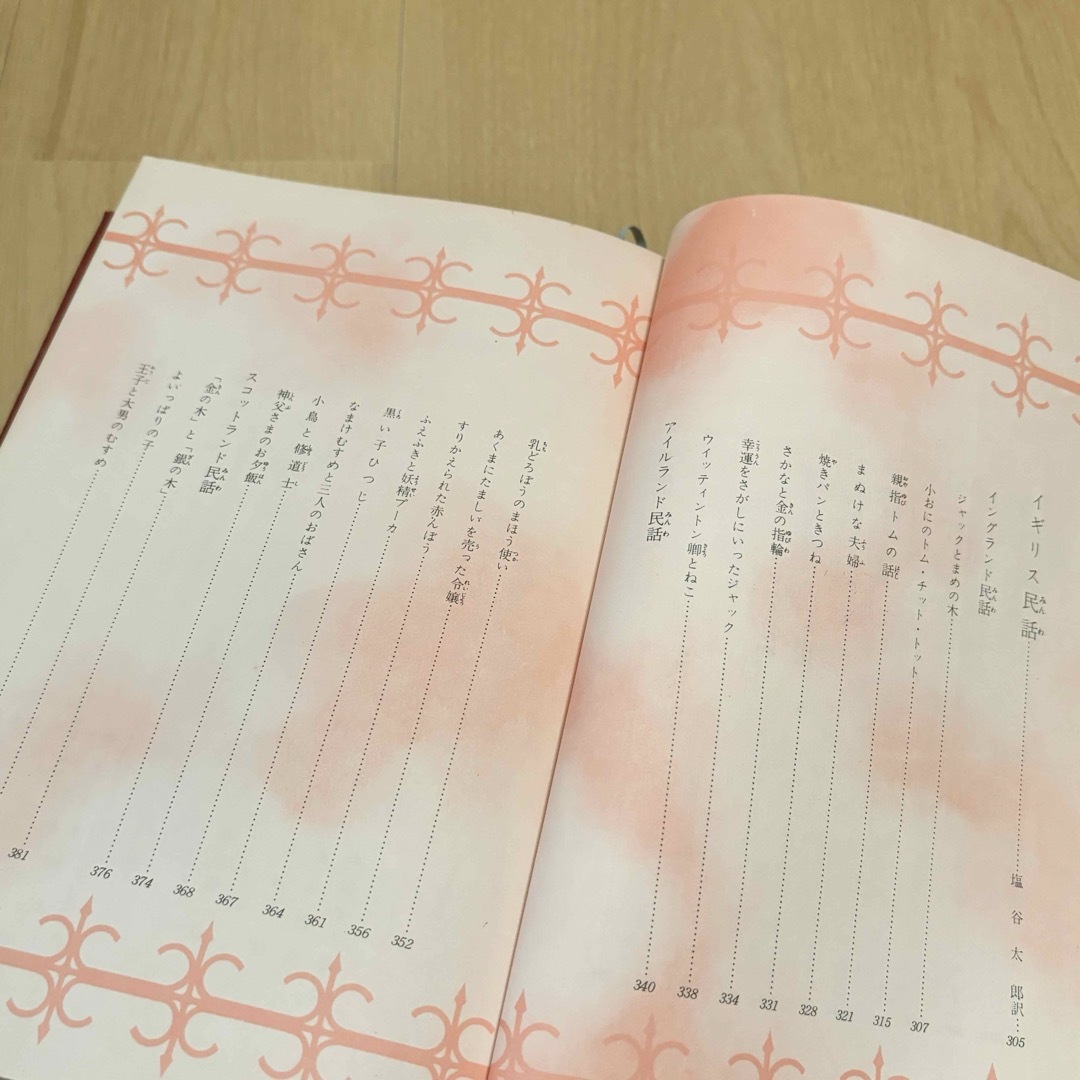 イギリス民話……塩谷太郎訳…305
イングランド民話
ジャックとまめの木……307
小おにのトム・チット・トット……315
親指トムの話……321
まぬけな夫婦……328
焼きパンときつね……331
さかなと金の指輪……334
幸運をさがしにいったジャック……338
ウイッティントン卿とねこ……340
アイルランド民話
乳どろぼうのまほう使い……352
あくまにたましいを売った令嬢……356
すりかえられた赤んぼう……361
ふえふきと妖精プーカ……364
黒い子ひつじ……367
なまけむすめと三人のおばさん……368
小鳥と修道士……374
神父さまのお夕飯……376
スコットランド民話
「金の木」と「銀の木」……381
よいっぱりの子……
王子と大男のむすめ……